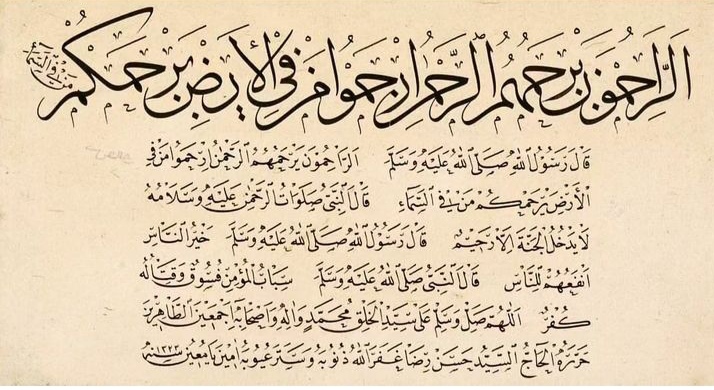 الراحمون يرحمهم الرحمن ارحموا من في الأرض يرحمكم من في السماء
قال رسول الله صلى الله عليه وسلم الراحمون يرحمهم الرحمن ارحموا من في
الأرض يرحمكم من في السماء قال النبي صلوات الرحمن عليه وسلامه
لا يدخل الجنة إلا رحيم قال رسول الله صلى الله عليه وسلم خير الناس
أنفعهم للناس قال النبي صلى الله عليه وسلم سباب المؤمن فسوق وقتاله
كفر اللهم صل وسلم على سيد الخلق محمد وآله وأصحابه أجمعين الطاهرين
حرره الحاج السيد حسن رضا غفر الله ذنوبه وستر عيوبه آمين يا معين سنة ١٣٢٣